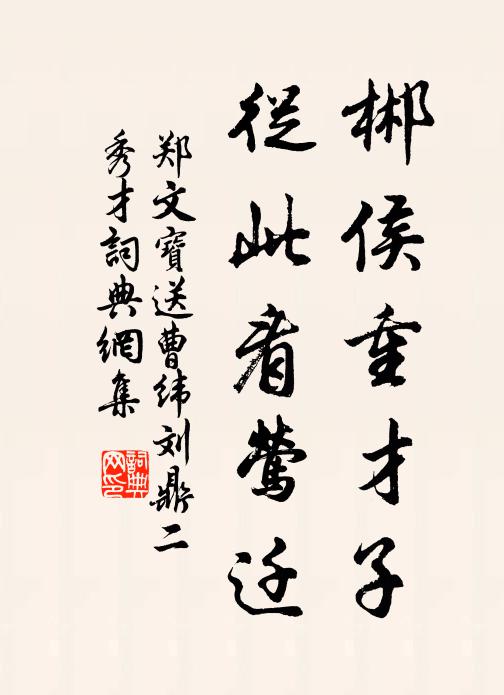 郴侯重才子
從此看鶯迁
郑文寶送曹纬刘鼎二
秀才詞典網集